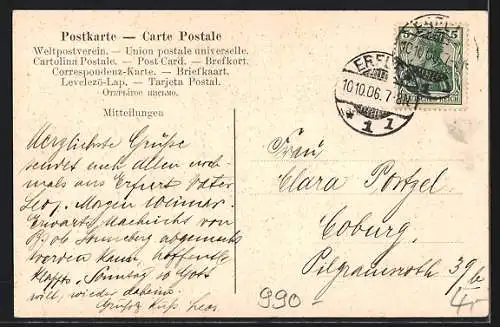 Postkarte — Carte Postale
Weltpostverein. — Union postale universelle.
Cartolina Postale. — Post Card. — Brefkort.
Correspondenz-Karte. — Briefkaart.
Levelező-Lap. — Tarjeta Postal.
Открытое письмо.
Mitteilungen
5 5
ERFURT
10.10.06. 7-8N.
* 1 1
Herzlichste Grüße
sendet euch allen noch-
mals aus Erfurt Vater
Morgen Weimar.
Erwarte Nachricht von
ob Sonneberg abgemacht
werden kann, hoffentl.
klappts. Sonntag so Gott
will, wieder daheim.
Gruß Kuß
Frau
Clara Portzel
Coburg.
Pilgramsroth 39b
990-